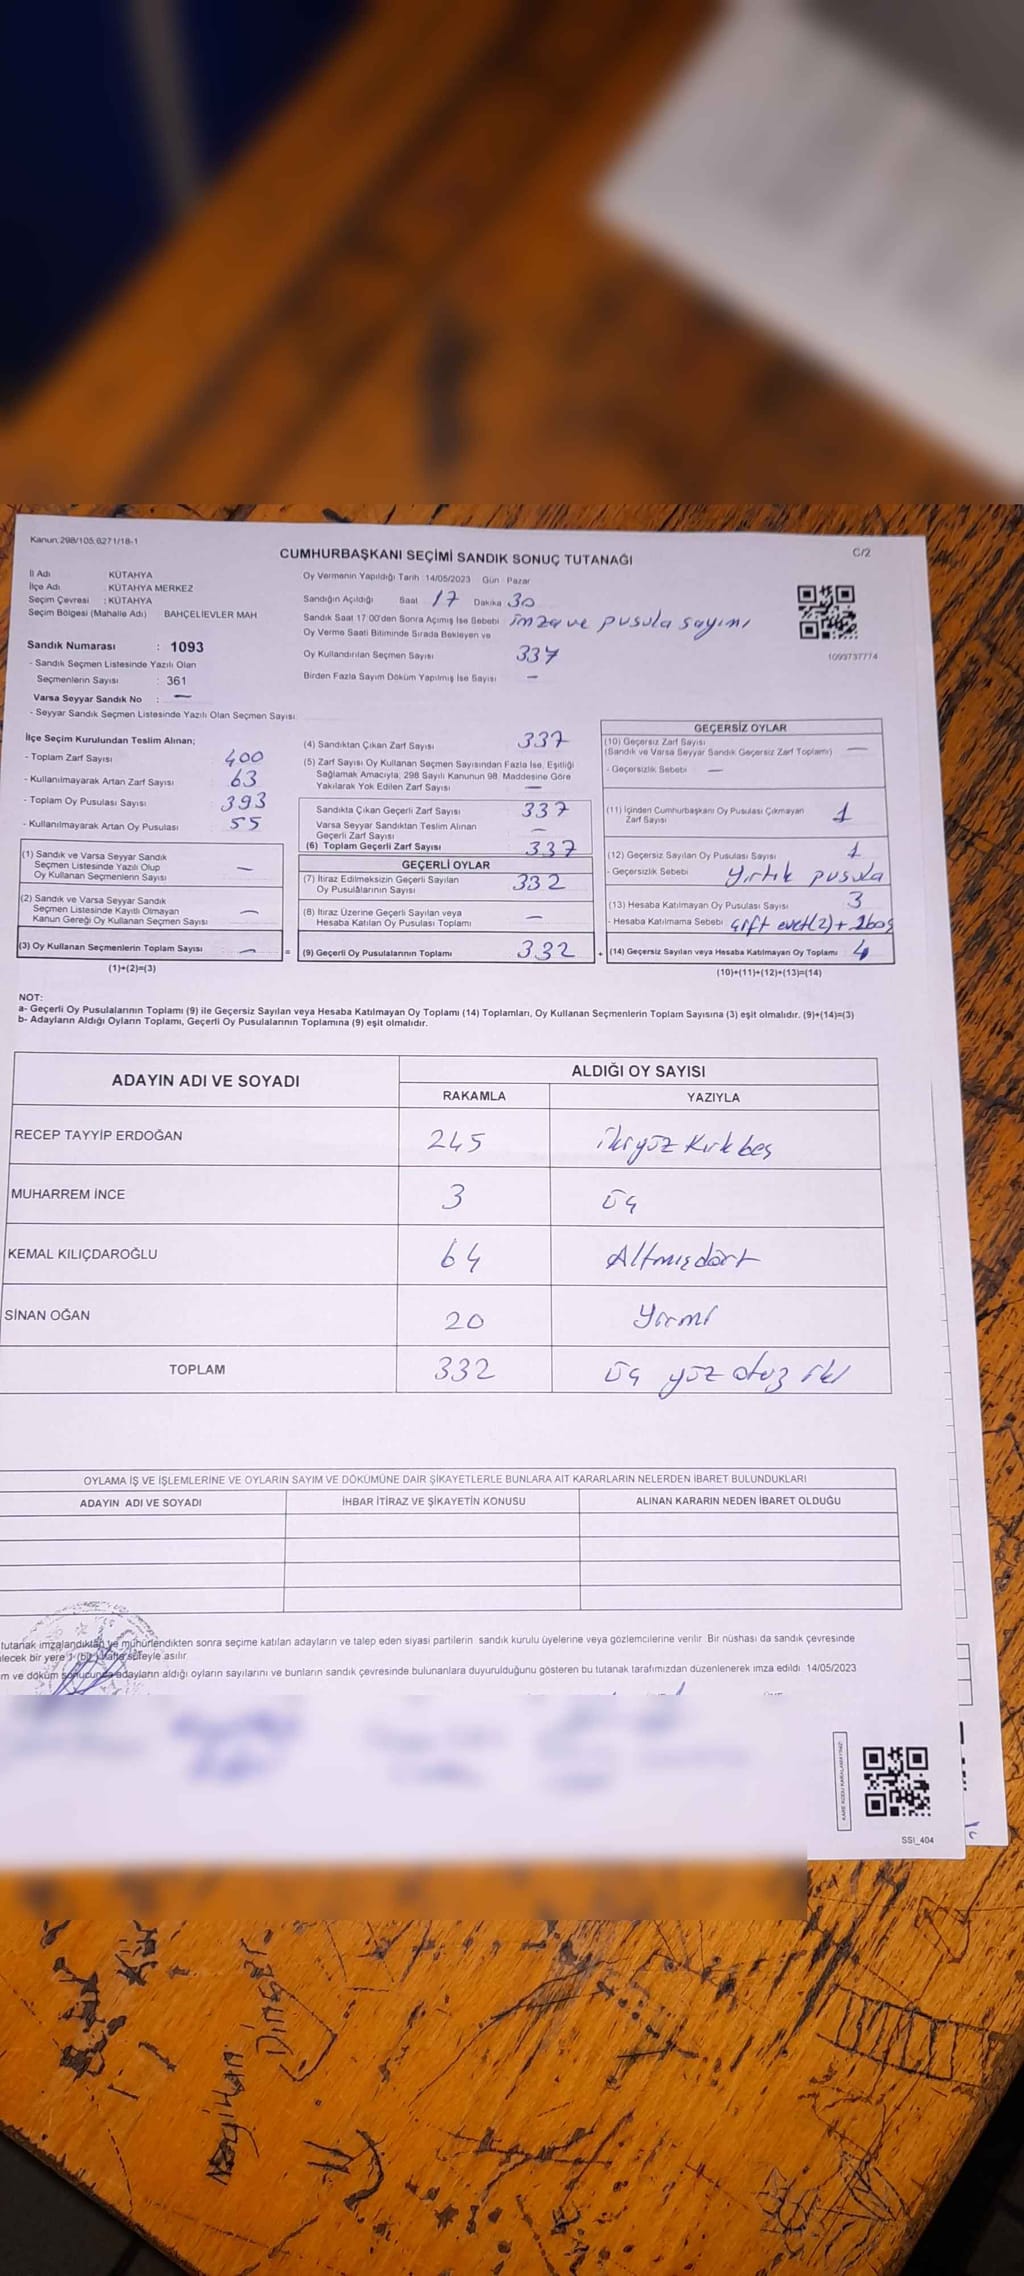 Kanun:298/105,6271/18-1
C/2
CUMHURBAŞKANI SEÇİMİ SANDIK SONUÇ TUTANAĞI
İl Adı KÜTAHYA
İlçe Adı KÜTAHYA MERKEZ
Seçim Çevresi : KÜTAHYA
Seçim Bölgesi (Mahalle Adı) BAHÇELİEVLER MAH
Sandık Numarası : 1093
- Sandık Seçmen Listesinde Yazılı Olan
Seçmenlerin Sayısı : 361
Varsa Seyyar Sandık No : —
- Seyyar Sandık Seçmen Listesinde Yazılı Olan Seçmen Sayısı:
Oy Vermenin Yapıldığı Tarih 14/05/2023 Gün : Pazar
Sandığın Açıldığı Saat 17 Dakika 30
Sandık Saat 17:00'den Sonra Açmış İse Sebebi imza ve pusula sayımı
Oy Verme Saati Bitiminde Sırada Bekleyen ve
Oy Kullandırılan Seçmen Sayısı 337
Birden Fazla Sayım Döküm Yapılmış İse Sayısı —
1093737774
İlçe Seçim Kurulundan Teslim Alınan;
- Toplam Zarf Sayısı 400
- Kullanılmayarak Artan Zarf Sayısı 63
- Toplam Oy Pusulası Sayısı 393
- Kullanılmayarak Artan Oy Pusulası 55
(1) Sandık ve Varsa Seyyar Sandık
Seçmen Listesinde Yazılı Olup
Oy Kullanan Seçmenlerin Sayısı —
(2) Sandık ve Varsa Seyyar Sandık
Seçmen Listesinde Kayıtlı Olmayan
Kanun Gereği Oy Kullanan Seçmen Sayısı —
(3) Oy Kullanan Seçmenlerin Toplam Sayısı —
(1)+(2)=(3)
(4) Sandıktan Çıkan Zarf Sayısı 337
(5) Zarf Sayısı Oy Kullanan Seçmen Sayısından Fazla İse, Eşitliği
Sağlamak Amacıyla, 298 Sayılı Kanunun 98. Maddesine Göre
Yakılarak Yok Edilen Zarf Sayısı —
Sandıkta Çıkan Geçerli Zarf Sayısı 337
Varsa Seyyar Sandıktan Teslim Alınan
Geçerli Zarf Sayısı —
(6) Toplam Geçerli Zarf Sayısı 337
GEÇERLİ OYLAR
(7) İtiraz Edilmeksizin Geçerli Sayılan
Oy Pusulalarının Sayısı 332
(8) İtiraz Üzerine Geçerli Sayılan veya
Hesaba Katılan Oy Pusulası Toplamı —
= (9) Geçerli Oy Pusulalarının Toplamı 332
GEÇERSİZ OYLAR
(10) Geçersiz Zarf Sayısı
(Sandık ve Varsa Seyyar Sandık Geçersiz Zarf Toplamı) —
- Geçersizlik Sebebi —
(11) İçinden Cumhurbaşkanı Oy Pusulası Çıkmayan
Zarf Sayısı 1
(12) Geçersiz Sayılan Oy Pusulası Sayısı 1
- Geçersizlik Sebebi yırtık pusula
(13) Hesaba Katılmayan Oy Pusulası Sayısı 3
- Hesaba Katılmama Sebebi çift evet(2)+1boş
+ (14) Geçersiz Sayılan veya Hesaba Katılmayan Oy Toplamı 4
(10)+(11)+(12)+(13)=(14)
NOT:
a- Geçerli Oy Pusulalarının Toplamı (9) ile Geçersiz Sayılan veya Hesaba Katılmayan Oy Toplamı (14) Toplamları, Oy Kullanan Seçmenlerin Toplam Sayısına (3) eşit olmalıdır. (9)+(14)=(3)
b- Adayların Aldığı Oyların Toplamı, Geçerli Oy Pusulalarının Toplamına (9) eşit olmalıdır.
ADAYIN ADI VE SOYADI
ALDIĞI OY SAYISI
RAKAMLA YAZIYLA
RECEP TAYYİP ERDOĞAN 245 ikiyüz Kırk beş
MUHARREM İNCE 3 üç
KEMAL KILIÇDAROĞLU 64 Altmışdört
SİNAN OĞAN 20 Yirmi
TOPLAM 332 üç yüz otuz iki
OYLAMA İŞ VE İŞLEMLERİNE VE OYLARIN SAYIM VE DÖKÜMÜNE DAİR ŞİKAYETLERLE BUNLARA AİT KARARLARIN NELERDEN İBARET BULUNDUKLARI
ADAYIN ADI VE SOYADI İHBAR İTİRAZ VE ŞİKAYETİN KONUSU ALINAN KARARIN NEDEN İBARET OLDUĞU
tutanak imzalandıktan ve mühürlendikten sonra seçime katılan adayların ve talep eden siyasi partilerin sandık kurulu üyelerine veya gözlemcilerine verilir. Bir nüshası da sandık çevresinde
lecek bir yere 1 (bir) hafta süreyle asılır.
m ve döküm sonucunda adayların aldığı oyların sayılarını ve bunların sandık çevresinde bulunanlara duyurulduğunu gösteren bu tutanak tarafımızdan düzenlenerek imza edildi. 14/05/2023
SSI_404
Dinçer
Nagihan